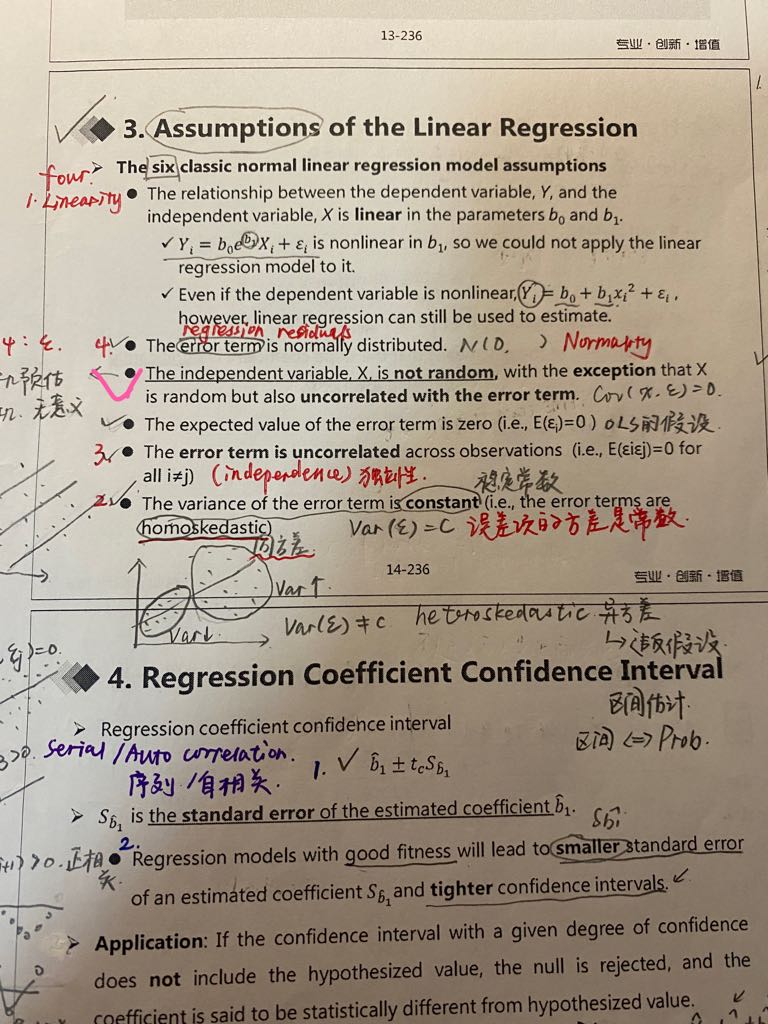 13-236
专业·创新·增值
3. Assumptions of the Linear Regression
four.
The six classic normal linear regression model assumptions
1. Linearity
The relationship between the dependent variable, Y, and the
independent variable, X is linear in the parameters b₀ and b₁.
✓ Yᵢ = b₀e^{b₁}Xᵢ + εᵢ is nonlinear in b₁, so we could not apply the linear
regression model to it.
✓ Even if the dependent variable is nonlinear, Yᵢ = b₀ + b₁xᵢ² + εᵢ,
however, linear regression can still be used to estimate.
regression residuals
4: ε.
4. ✓ The error term is normally distributed. N(0, ) Normality
预估
The independent variable, X, is not random, with the exception that X
is random but also uncorrelated with the error term. Cov(x, ε)=0.
无意义
✓ The expected value of the error term is zero (i.e., E(εᵢ)=0) OLS的假设.
3. ✓ The error term is uncorrelated across observations (i.e., E(εiεj)=0 for
all i≠j) (independence) 独立性.
稳定常数
2. ✓ The variance of the error term is constant (i.e., the error terms are
homoskedastic) Var(ε)=C 误差项的方差是常数.
同方差
14-236
专业·创新·增值
Var↑
Var↓
Var(ε)≠c heteroskedastic 异方差
↳违反假设
εj)=0.
4. Regression Coefficient Confidence Interval
区间估计.
Regression coefficient confidence interval
区间⇔Prob.
>0. Serial/Auto correlation.
序列/自相关.
1. ✓ b̂₁ ± t_c S_b̂₁
S_b̂₁ is the standard error of the estimated coefficient b̂₁.
Sb̂₁
>0. 正相关.
2. Regression models with good fitness will lead to smaller standard error
of an estimated coefficient S_b̂₁ and tighter confidence intervals. ✓
Application: If the confidence interval with a given degree of confidence
does not include the hypothesized value, the null is rejected, and the
coefficient is said to be statistically different from hypothesized value.